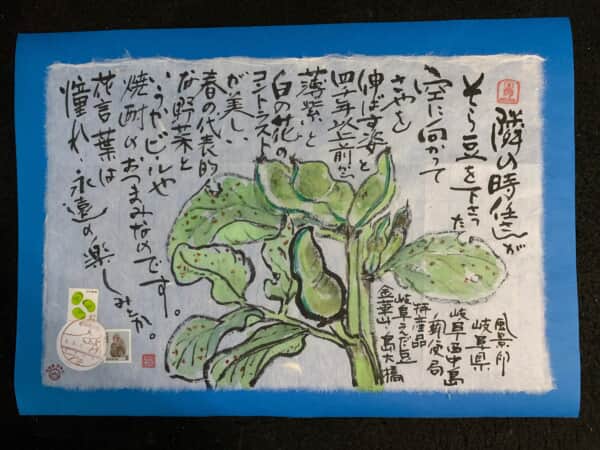 隣の時任さんが
そら豆を下さった
空に向かって
さやを
伸ばす姿と
四千年以上前から
薄紫と
白の花の
コントラスト
が美しい
春の代表的
な野菜と
いうかビールや
焼酎のおつまみなのです。
花言葉は
憧れ・永遠の楽しみとか。
風景印
岐阜県
岐阜西中島
郵便局
特産品
岐阜えだ豆
金華山・島大橋